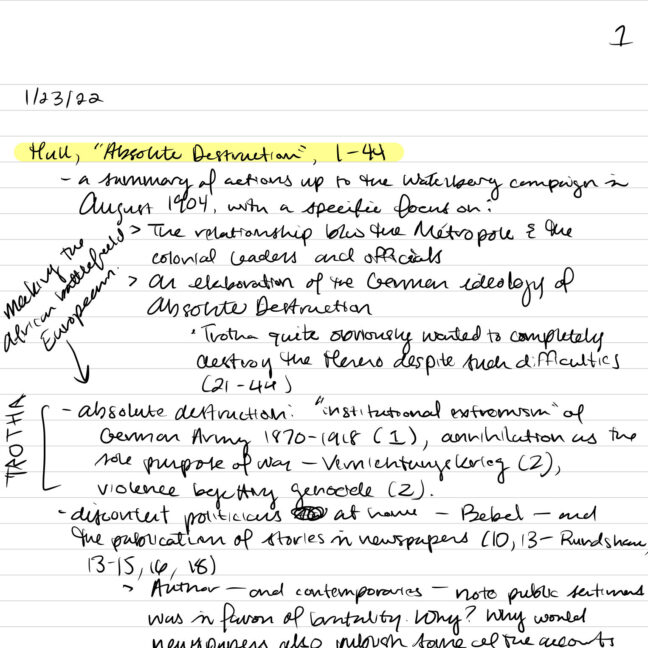 1
1/23/22
Hull, "Absolute Destruction", 1-44
- a summary of actions up to the Waterberg campaign in
August 1904, with a specific focus on:
> The relationship btw the Métropole & the
colonial leaders and officials
> an elaboration of the German ideology of
Absolute Destruction
• Trotha quite obviously wanted to completely
destroy the Herero despite such difficulties
(21-44)
making the
african battlefield
European.
TROTHA
- absolute destruction: "institutional extremism" of
German Army 1870-1918 (1), annihilation as the
sole purpose of war - Vernichtungskrieg (2),
violence begetting genocide (2).
- discontent politicians at home - Bebel - and
the publication of stories in newspapers (10, 13- Rundschau,
13-15, 16, 18)
> Author - and contemporaries - note public sentiment
was in favor of brutality. Why? Why would
newspapers also publish some of the accounts